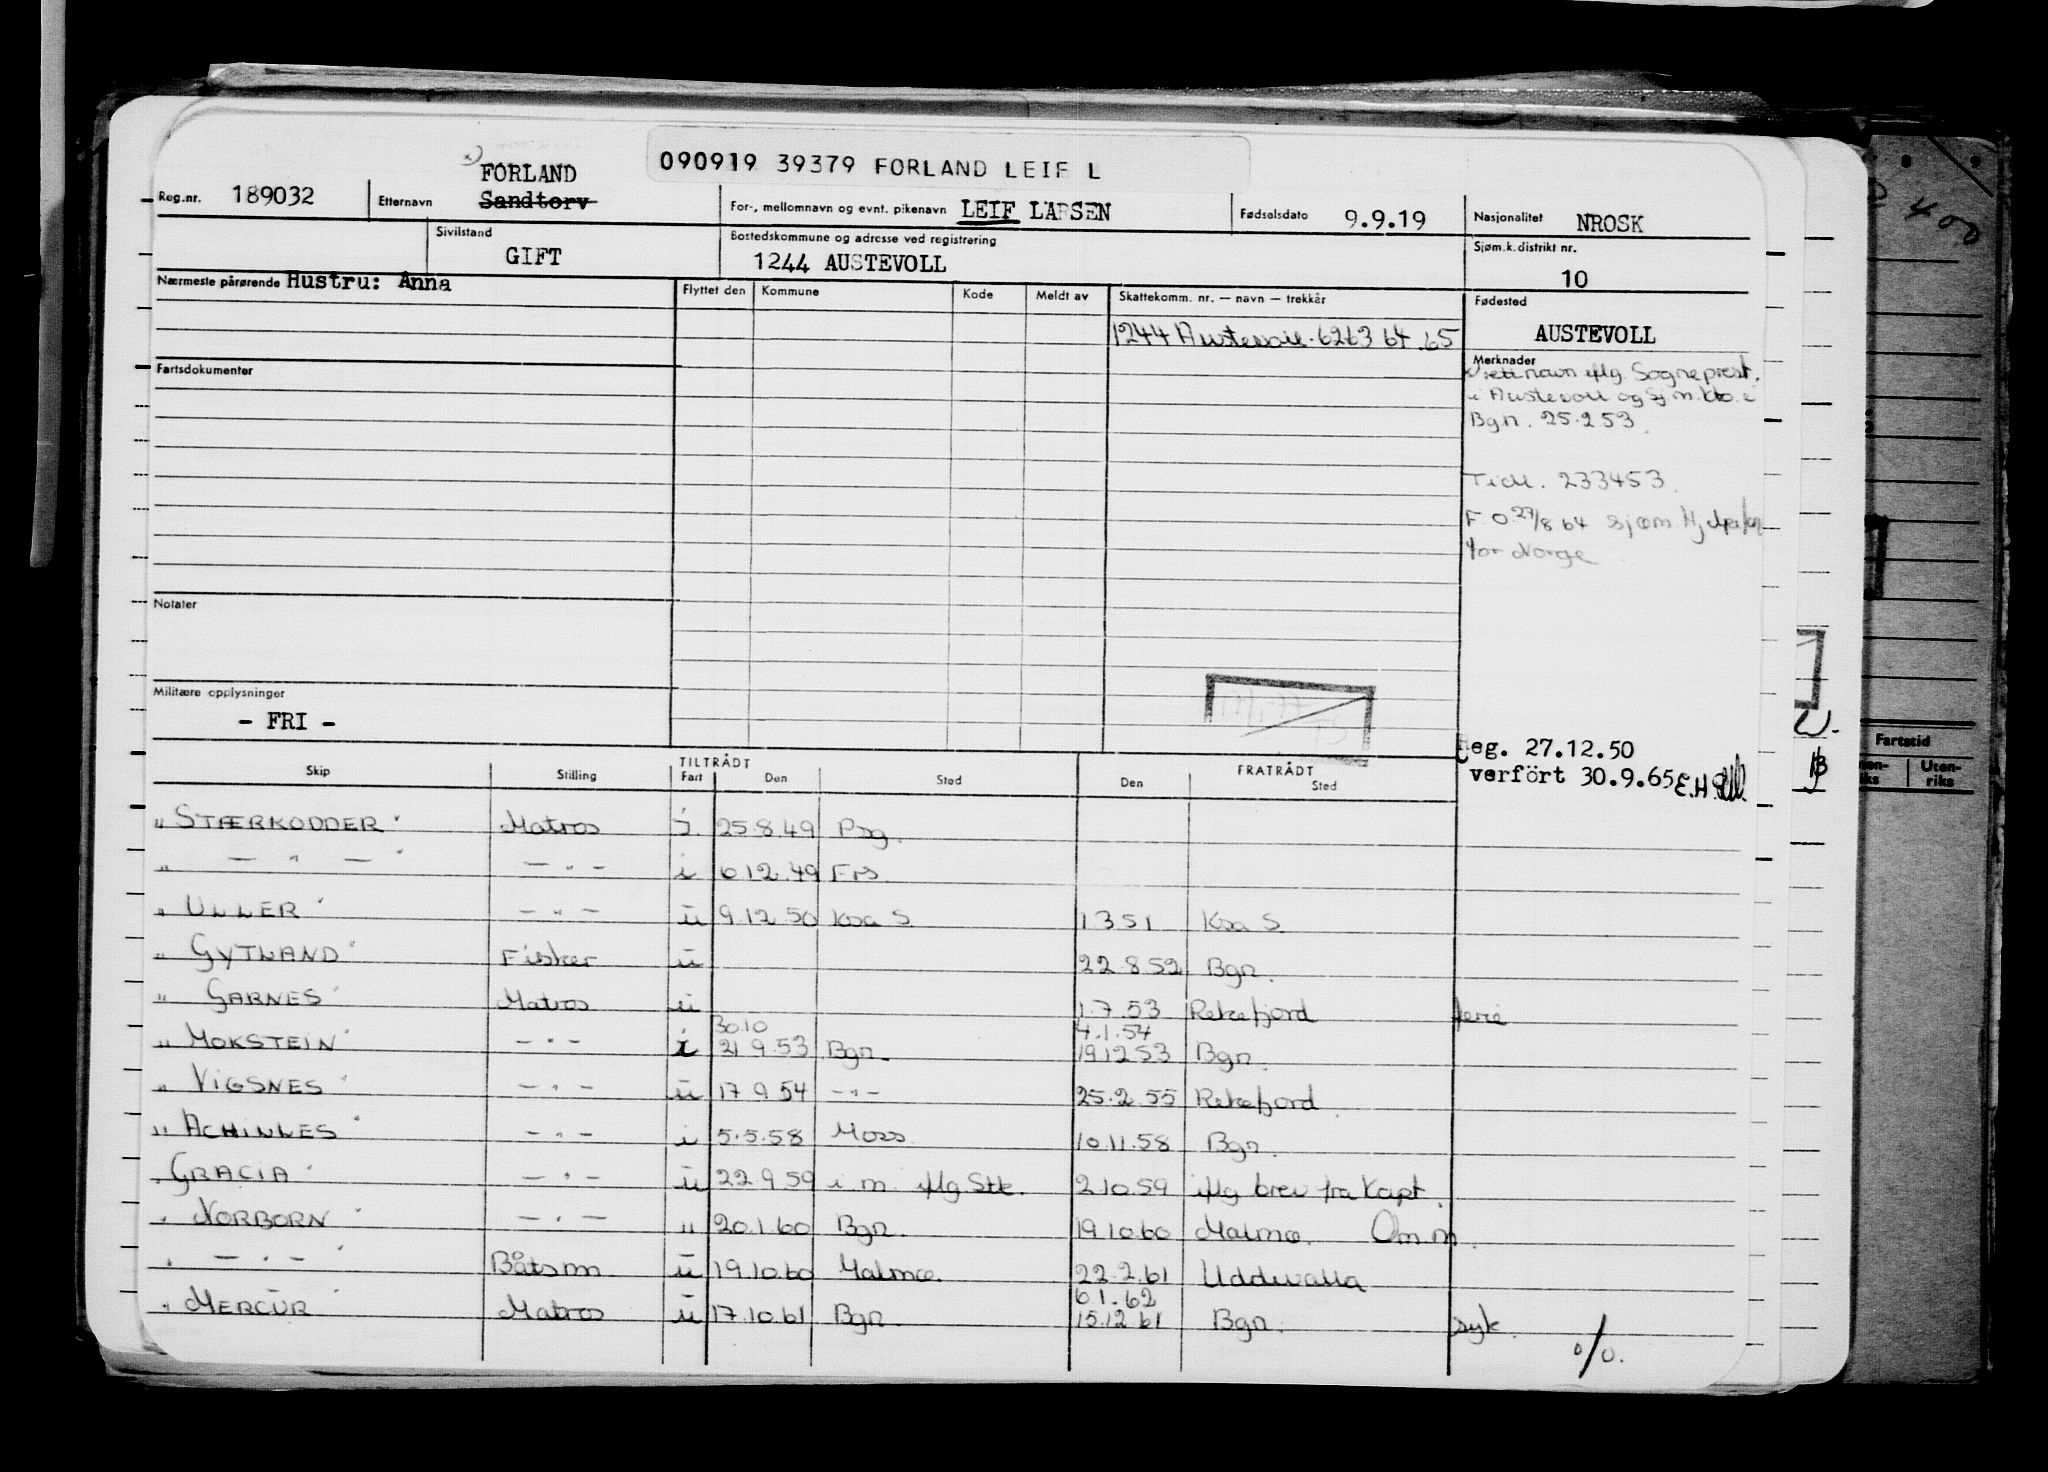 090919 39379 FORLAND LEIF L
x) FORLAND
Reg.nr. 189032 Etternavn Sandtorv For-, mellomnavn og evnt. pikenavn LEIF LARSEN Fødselsdato 9.9.19 Nasjonalitet NROSK
Sivilstand GIFT Bostedskommune og adresse ved registrering 1244 AUSTEVOLL Sjøm.k.distrikt nr. 10
Nærmeste pårørende Hustru: Anna Flyttet den Kommune Kode Meldt av Skattekomm. nr. — navn — trekkår Fødested
1244 Austevoll. 62 63 64 65 AUSTEVOLL
Fartsdokumenter
Merknader
x) rett navn iflg. Sogneprest.
i Austevoll og Sjm.kto. i
Bgn. 25.2.53.
Tidl. 233453.
F.O. 27/8 64 sjøm.
for Norge
Notater
Militære opplysninger
- FRI -
eg. 27.12.50
verført 30.9.65
Skip Stilling TILTRÅDT Fart Den Sted FRATRÅDT Den Sted
" STÆRKODDER " Matros i. 25.8.49 Psg.
" — " — " — " — i 6.12.49 Frs
" ULLER " — " — u 9.12.50 Ksa S 1.3.51 Ksa S
" GYTLAND " Fisker u 22.8.52 Bgn.
" GARNES " Matros u 1.7.53 Rekefjord ferie
30.10 4.1.54
" MOKSTEIN " — " — i 21.9.53 Bgn. 19.12.53 Bgn.
" VIGSNES " — " — u 17.9.54 — " — 25.2.55 Rekefjord.
" ACHILLES " — " — i 5.5.58 Moss 10.11.58 Bgn.
" GRACIA " — " — u 22.9.59 i.m. iflg Stk. 2.10.59 iflg brev fra Kapt.
" NORBORN " — " — " 20.1.60 Bgn. 19.10.60 Malmø. Om m.
" — " — " Båtsmn u 19.10.60 Malmø. 22.2.61 Uddevalla
6.1.62
" MERCUR " Matros u 17.10.61 Bgn. 15.12.61 Bgn. syk.
Fartstid
Uten-
riks